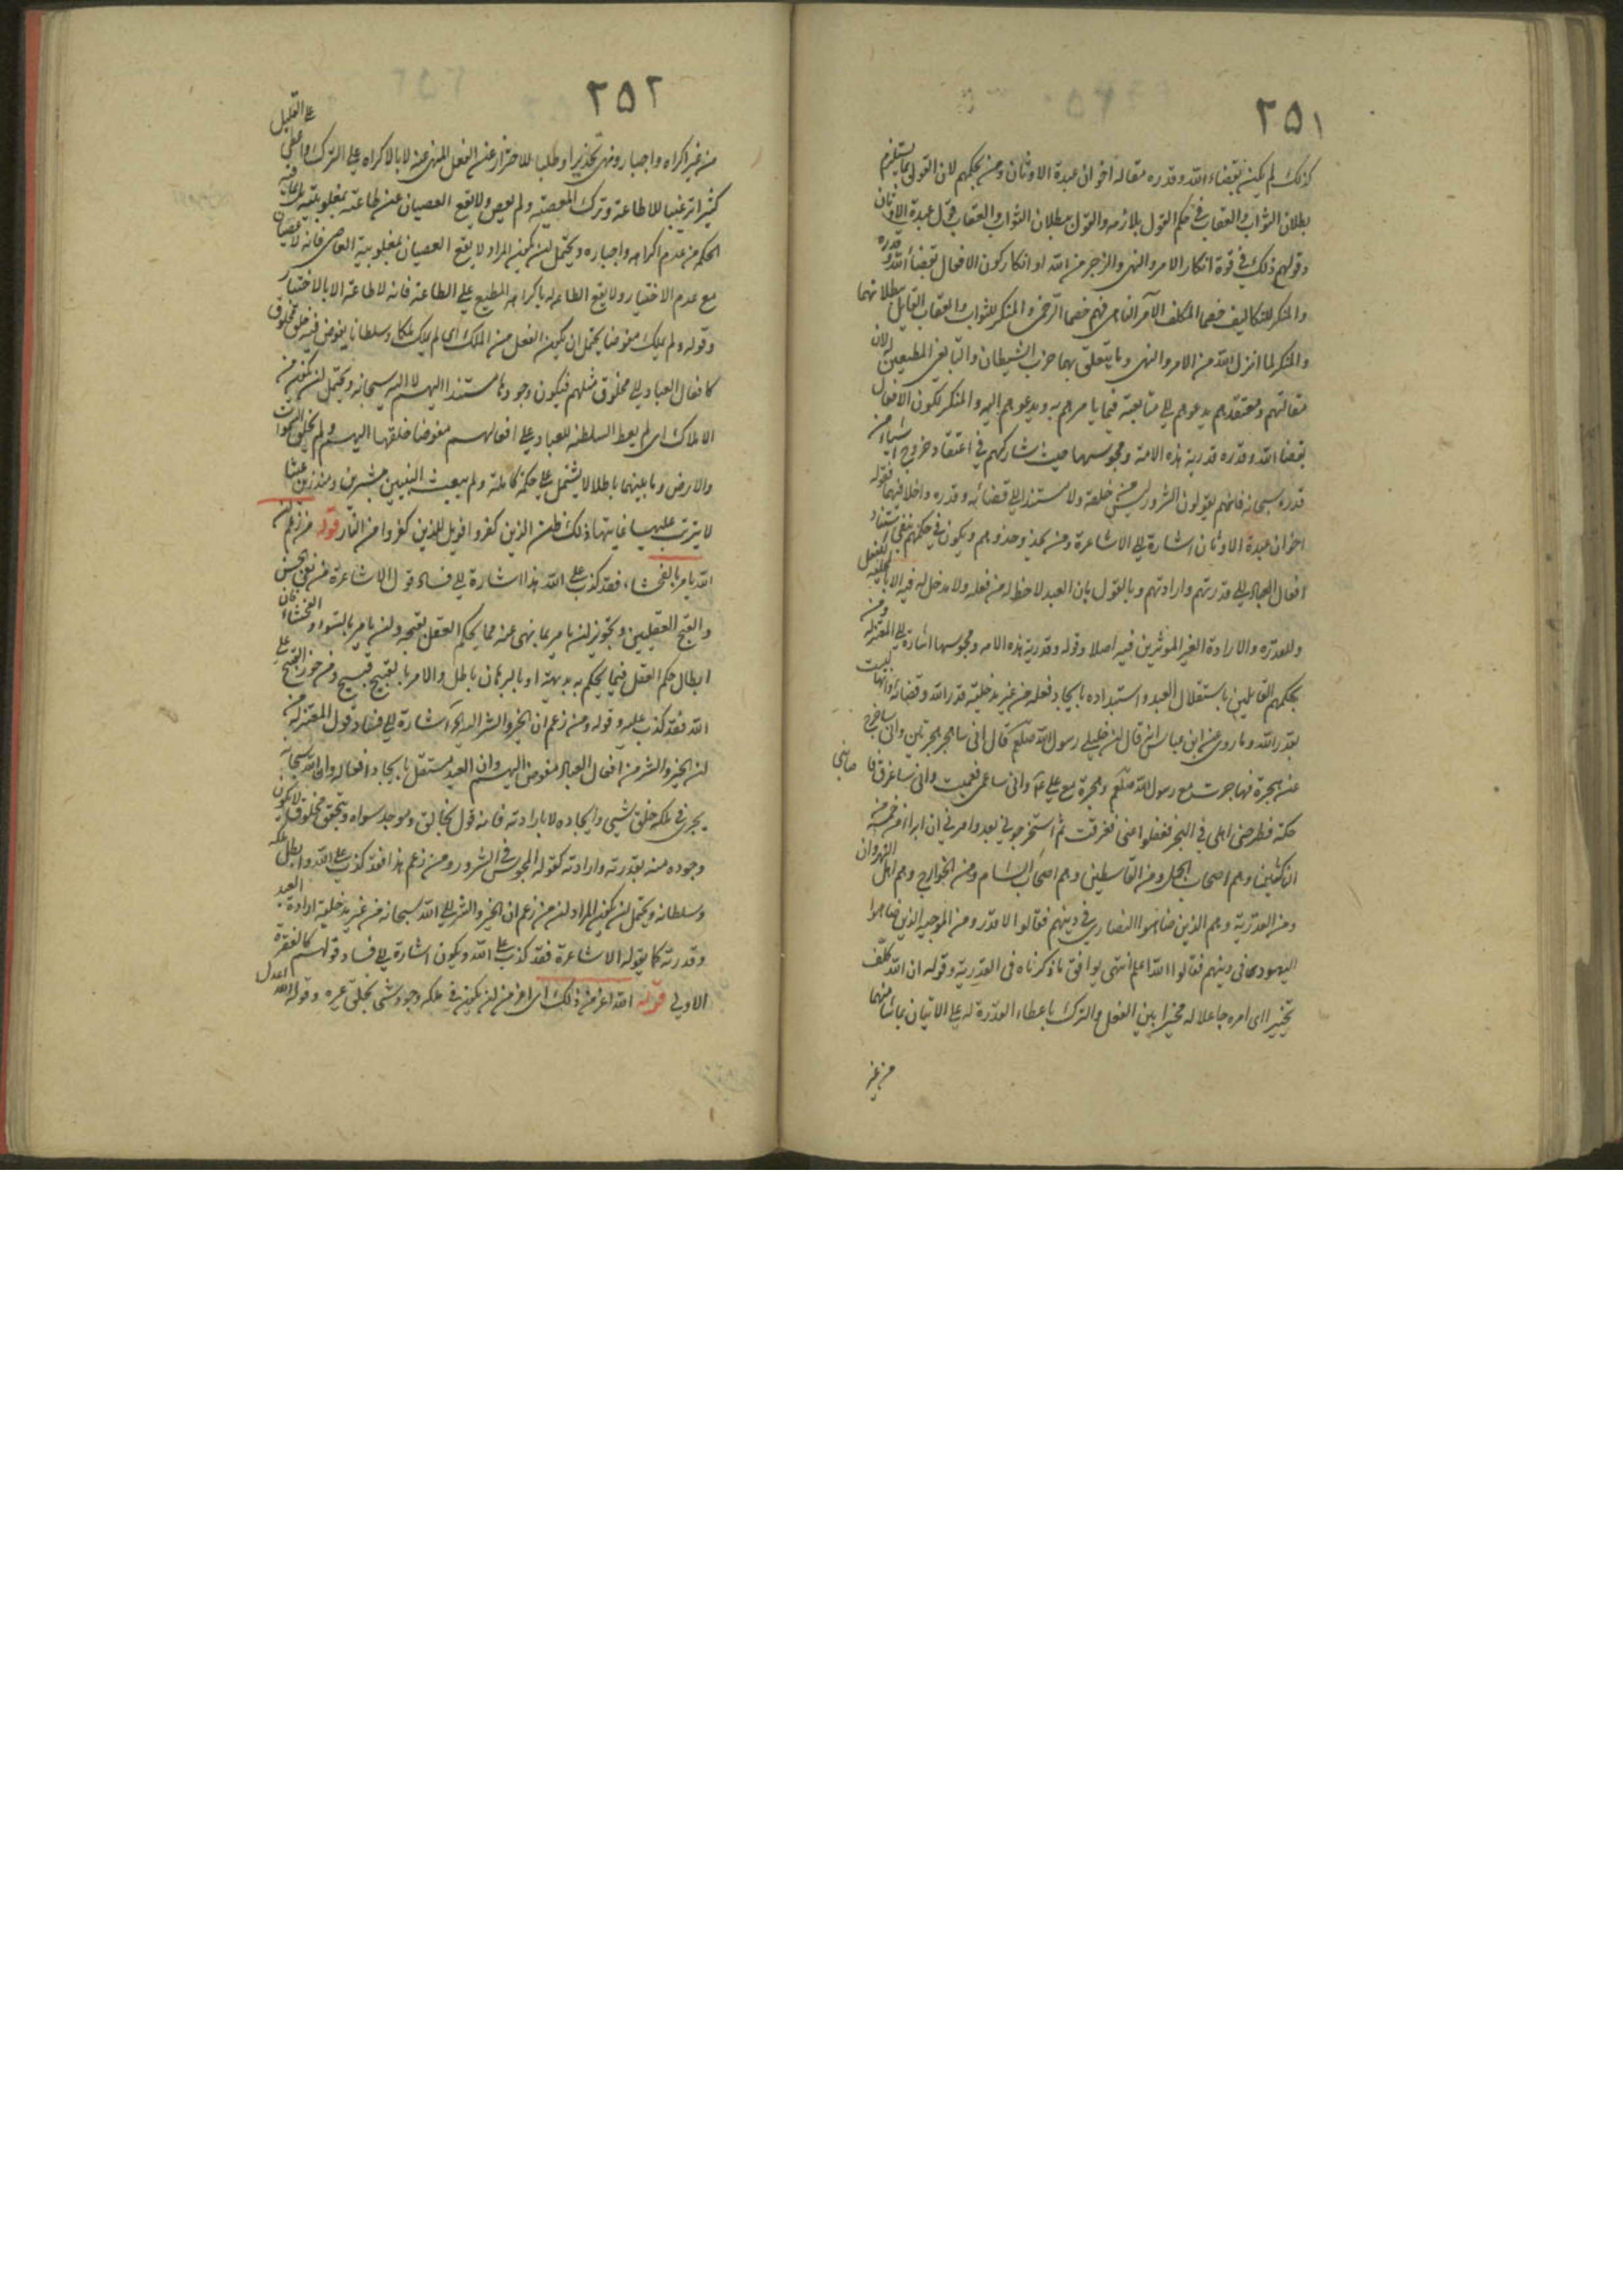 ٢٥١
كذلك لم يكن بقضاء الله وقدره مقالة اخوان عبدة الاوثان ومن يحكمهم لان القول بما يستلزم
بطلان الثواب والعقاب في حكم القول بلازمه والقول ببطلان الثواب والعقاب قول عبدة الاوثان
وقولهم ذلك في قوة انكار الامر والنهي والزجر من الله او انكار كون الافعال بقضاء الله وقدره
والمنكر للتكاليف خصماء المكلف الآمر الناهي فهم خصماء الرحمن والمنكر للثواب والعقاب القايل ببطلانهما
والمنكر لما انزل الله من الامر والنهي وما يتعلق بهما حزب الشيطان والتابعين المطيعين له لان
مقالتهم ومعتقدهم يدعوهم الى متابعته فيما يامرهم به ويدعوهم اليه والمنكر لكون الافعال
بقضاء الله وقدره قدرية هذه الامة ومجوسها حيث شاركهم في اعتقاد خروج اشياء من
قدره سبحانه فانهم يقولون الشرور ليس من خلقه ولا مستند الى قضائه وقدره وقوله
اخوان عبدة الاوثان اشارة الى الاشاعرة ومن يحذو حذوهم ويكون في حكمهم بنفي استناد
افعال العباد الى قدرتهم وارادتهم وبالقول بان العبد لا حظ له من فعله ولا مدخل له فيه الا بالمحلية للفعل
وللقدرة والارادة الغير المؤثرين فيه اصلا وقوله وقدرية هذه الامة ومجوسها اشارة الى المعتزلة ومن
بحكمهم القايلين باستقلال العبد واستبداده بايجاد فعله من غير مدخلية قدر الله وقضائه وانها ليست
بقدر الله وما روي عن ابن عباس انه قال ان خليلي رسول الله صلعم قال اني ساهجر هجرتين واني ساخرج
عن هجرتي فهاجرت مع رسول الله صلعم وهجرة مع علي ع واني ساعمى فعميت واني ساغرق فاصابني
حكة فطرحني اهلي في البحر فغفلوا عني فغرقت ثم استخرجوني بعد وامرني ان ابرأ من خمسة من
الناكثين وهم اصحاب الجمل ومن القاسطين وهم اصحاب الشام ومن الخوارج وهم اهل النهروان
ومن القدرية وهم الذين ضاهوا النصارى في دينهم فقالوا لا قدر ومن المرجئة الذين ضاهوا
اليهود في دينهم فقالوا الله اعلم انتهى يوافق ما ذكرناه في القدرية وقوله ان الله كلف
تخييرا اي امره جاعلا له مخيرا بين الفعل والترك باعطاء القدرة له على الاتيان بما شاء منهما
من غير
٢٥٢
من غير اكراه واجبار ونهى تحذيرا وطلبا للاحتراز عن الفعل المنهي عنه لا بالاكراه على الترك واعطى على القليل
كثيرا ترغيبا للاطاعة وترك المعصية ولم يعص ولا يقع العصيان عن طاعته بمغلوبيته
الحكم من عدم اكراهه واجباره ويحتمل ان يكون المراد لا يقع العصيان بمغلوبية العاصي فانه لا عصيان
مع عدم الاختيار ولا يقع الطاعة له باكراه المطيع على الطاعة فانه لا طاعة الا بالاختيار
وقوله ولم يملك مفوضا يحتمل ان يكون الفعل من الملك اي لم يملك ملكا وسلطانا يفوض فيه خلق مخلوق
كافعال العباد الى مخلوق مثلهم فيكون وجودها مستندا اليهم لا اليه سبحانه ويحتمل ان يكون من
الاملاك اي لم يعط السلطنة للعباد على افعالهم مفوضا خلقها اليهم ولم يخلق السموات
والارض وما بينهما باطلا لا يشتمل على حكمة كاملة ولم يبعث النبيين مبشرين ومنذرين عبثا
لا يترتب عليها غايتها ذلك ظن الذين كفروا فويل للذين كفروا من النار قوله من زعم ان
الله يامر بالفحشاء فقد كذب على الله هذا اشارة الى فساد قول الاشاعرة من نفي الحسن
والقبح العقليين وتجويز ان يامر بما نهى عنه مما يحكم العقل بقبحه وان يامر بالسوء والفحشاء فان
ابطال حكم العقل فيما يحكم به بديهة او بالبرهان باطل والامر بالقبيح قبيح ومن جوز القبح على
الله فقد كذب عليه وقوله ومن زعم ان الخير والشر اليه الخ اشارة الى فساد قول المعتزلة من
ان الخير والشر من افعال العباد مفوض اليهم وان العبد مستقل بايجاد افعاله وان الله سبحانه
يجري في ملكه خلق شيء وايجاده لا بارادته فانه قول بخالق وموجد سواه وتحقق مخلوق لا يكون
وجوده منه بقدرته وارادته كقول المجوس في الشرور ومن زعم هذا فقد كذب على الله وابطل ملكه
وسلطانه ويحتمل ان يكون المراد ان من زعم ان الخير والشر الى الله سبحانه من غير مدخلية ارادة العبد
وقدرته كما يقوله الاشاعرة فقد كذب على الله ويكون اشارة الى فساد قولهم كالفقرة
الاولى قوله الله اعز من ذلك اي اعز من ان يكون في ملكه وجود شيء بخلق غيره وقوله الله اعدل